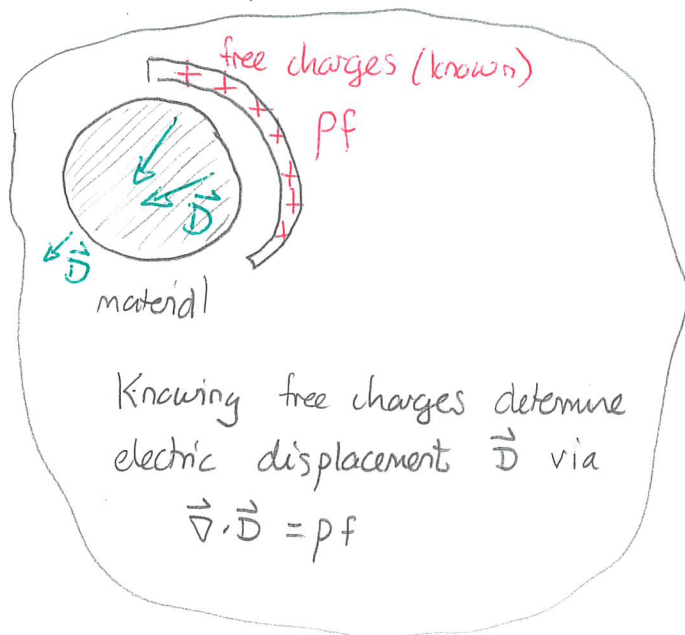 free charges (known)
ρf
D⃗
D⃗
material
Knowing free charges determine
electric displacement D⃗ via
∇⃗·D⃗ = ρf